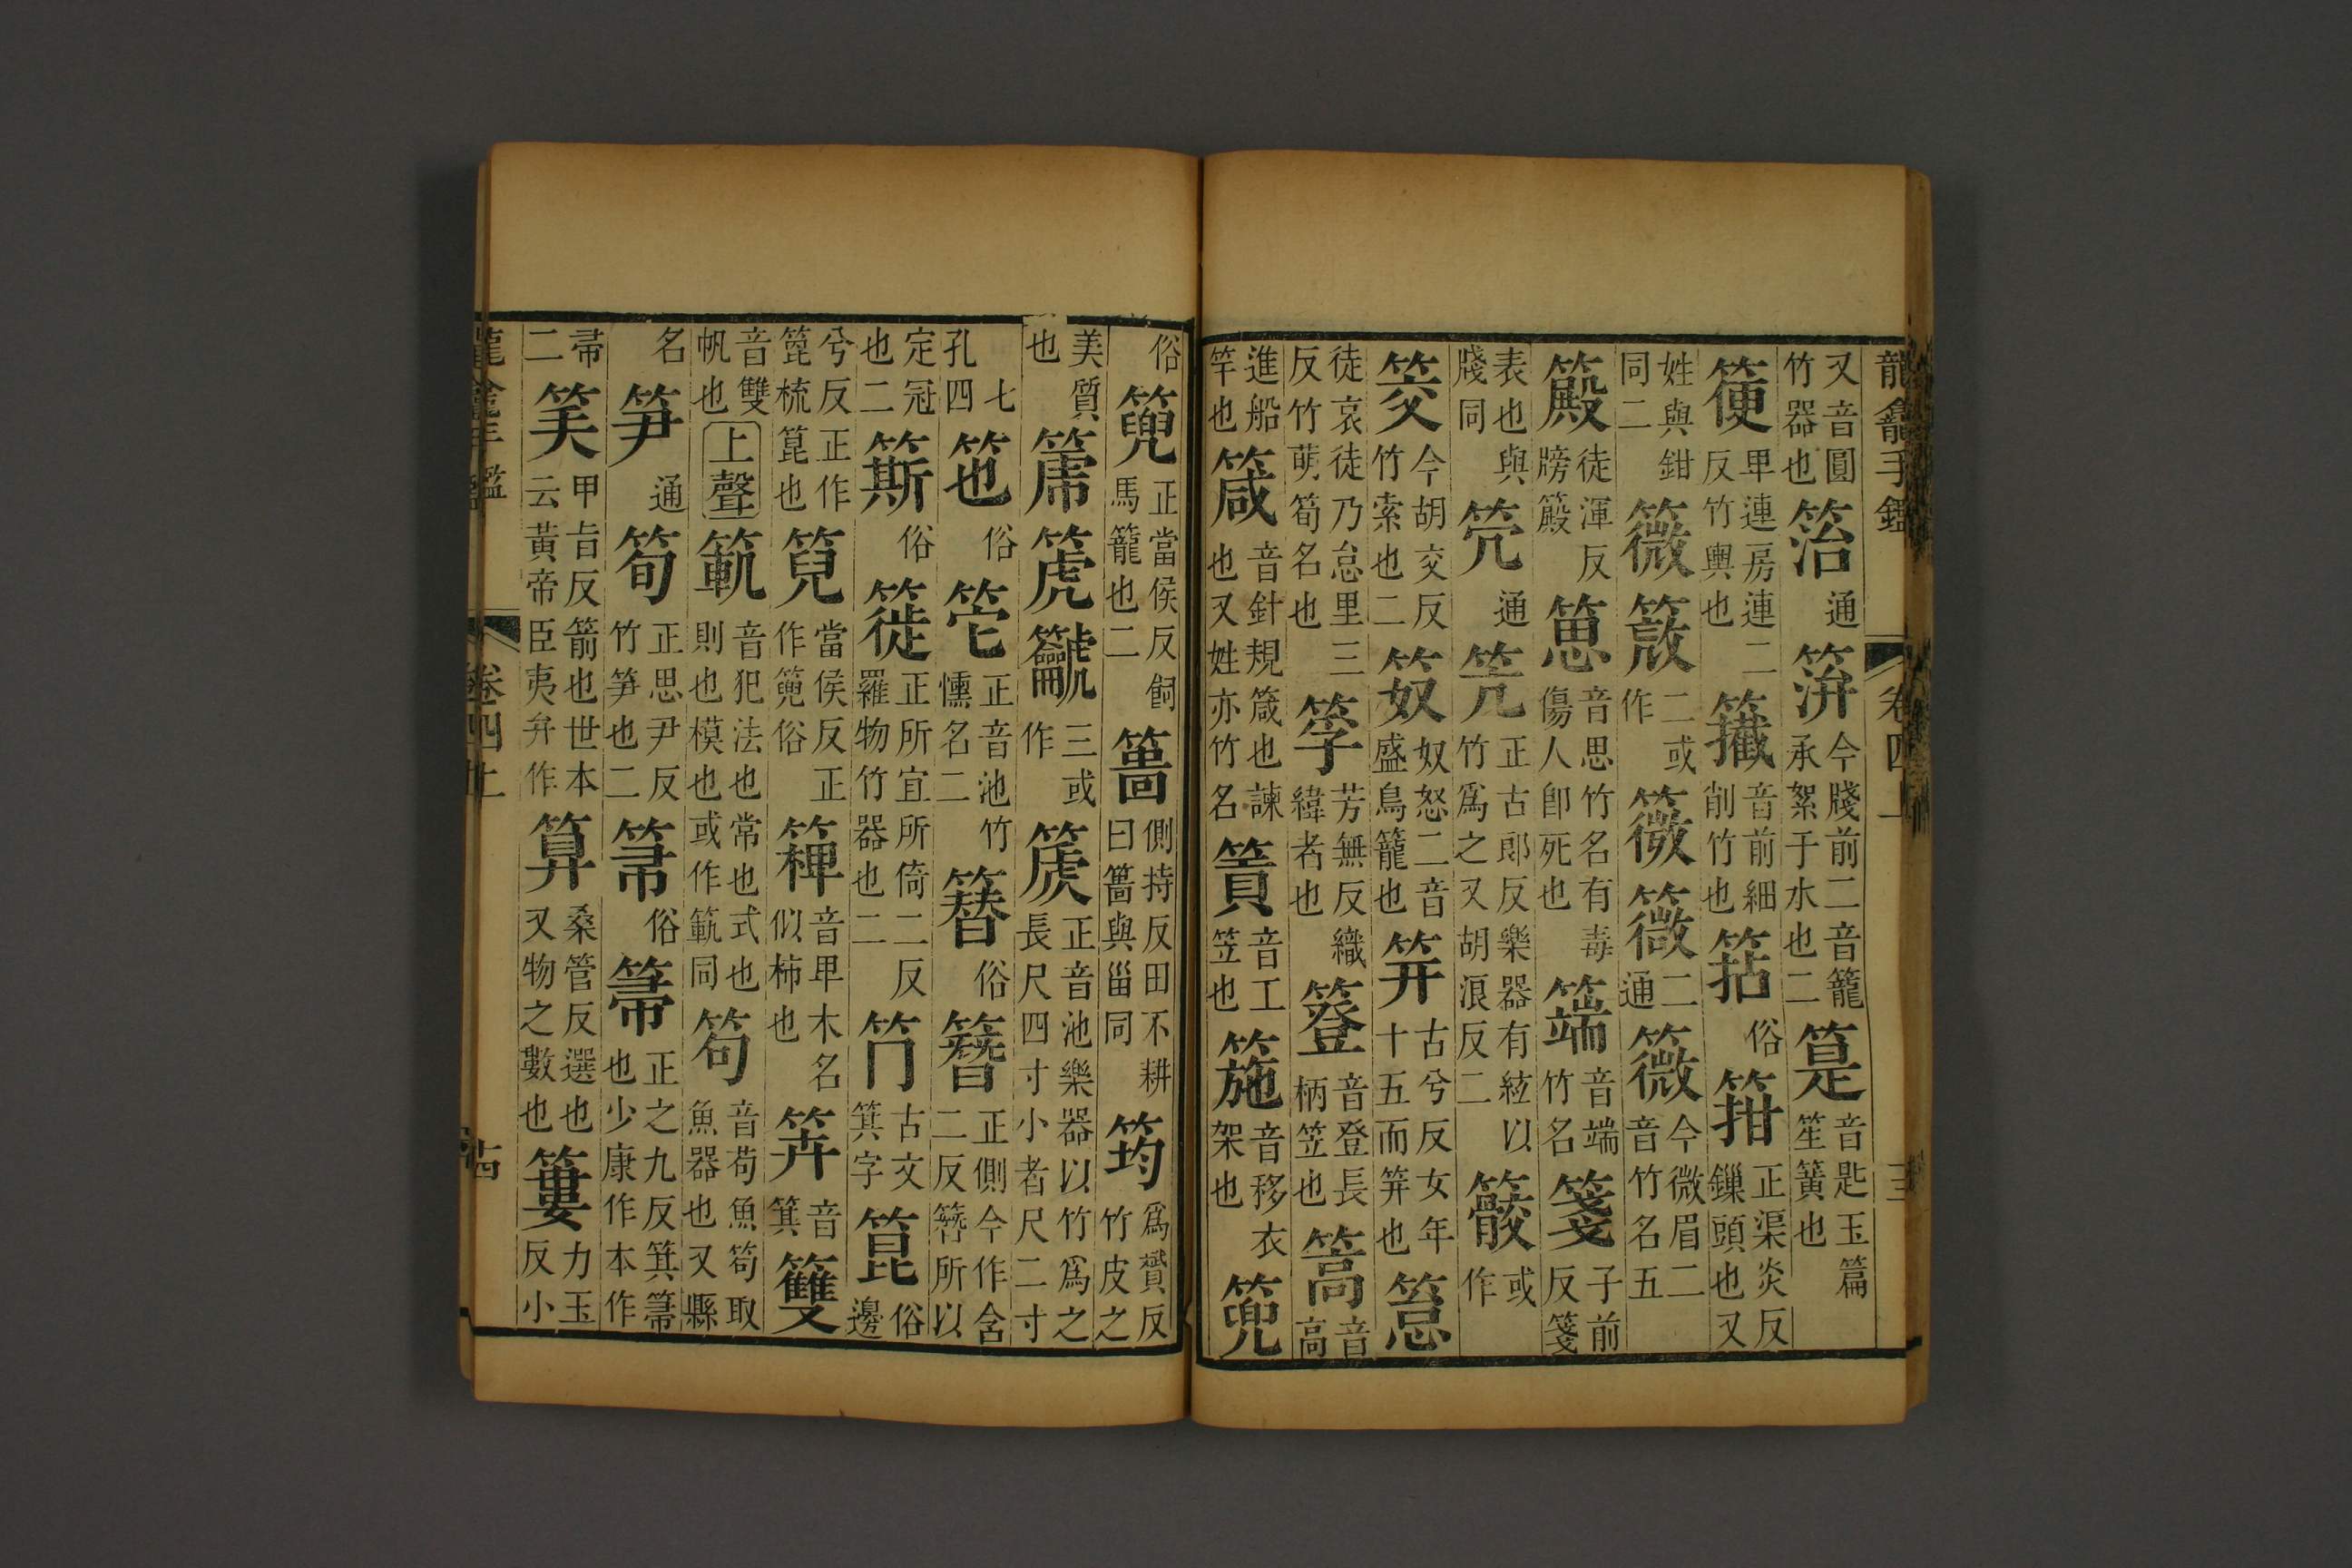 龍龕手鑑 卷四 三
又音圓竹器也 䇛通 箳今牋前二音籠承絮于水也二 筫音匙玉篇笙簧也
箯畀連房連二反竹輿也 籛音前細削竹也 𥬔俗 箝正渠炎反鏁頭也又
姓與鉗同二 䉠 䈼二或作 䉠 䉠二通 薇今微眉二音竹名五
䈷徒渾反牓䈷 䈱音思竹名有毒傷人卽死也 䉑音端竹名 箋子前反箋
表也與牋同 䇔通 笐正古郎反樂器有絃以竹爲之又胡浪反二 䯨或作
筊今胡交反竹索也二 笯奴怒二音盛鳥籠也 笄古兮反女年十五而笄也 箈
徒哀徒乃怠里三反竹萌筍名也 筟芳無反織緯者也 簦音登長柄笠也 篙音高
進船竿也 箴音針規箴也諫也又姓亦竹名 篢音工笠也 箷音移衣架也 篼
俗 篼正當侯反飼馬籠也二 䈕側持反田不耕曰䈕與甾同 筠爲贇反竹皮之
美質也 篪 箎 䶵三或作 篪正音池樂器以竹爲之長尺四寸小者尺二寸
七孔四 䇣俗 笹正音池竹㦬名二 簪俗 簪正側今作含二反簪所以
定冠也二 簛俗 簁正所宜所倚二反羅物竹器也二 𥫶古文箕字 箟俗邊
兮反正作箆梳箟也 䈊當侯反正作篼俗 箄音畀木名似柿也 筓音箕 䉶
音雙帆也 上聲 範音犯法也常也式也則也模也或作範同 笱音苟魚笱取魚器也又縣
名 笋通 筍正思尹反竹笋也二 帚俗 箒正之九反箕箒也少康作本作
帚二 笶甲㫖反箭也世本云黃帝臣夷弁作 算桑管反選也又物之數也 簍力主反小
龍龕手鑑 卷四